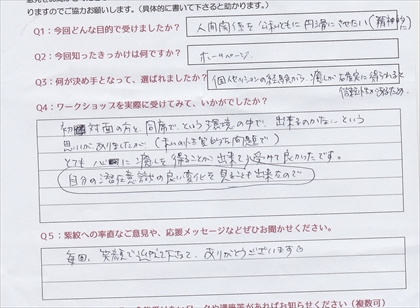 りますのでご協力お願いします。(具体的に書いて下さると助かります。)
Q1:今回どんな目的で受けましたか?
人間関係を公私ともに円滑にさせたい(精神的)
Q2:今回知ったきっかけは何ですか?
ホームページ
Q3:何が決め手となって、選ばれましたか?
個人セッションの経験から、癒しが確実に得られると
Q4:ワークショップを実際に受けてみて、いかがでしたか?
初対面の方と同席で、という環境の中で、出来るのかなぁという
思いがありましたが
とても心に癒しを得ることが出来て、受けて良かったです。
自分の潜在意識の良い変化を見ることも出来たので
Q5:紫紋への率直なご意見や、応援メッセージなどぜひお聞かせください。
毎回、笑顔で迎えて下さって、ありがとうございます